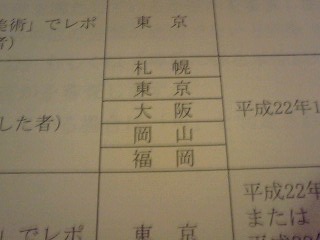 美術」でレポ
者)
東 京
札 幌
東 京
大 阪
岡 山
福 岡
した者)
平成22年1
しでレポ
東 京
平成22年
または
平成22年